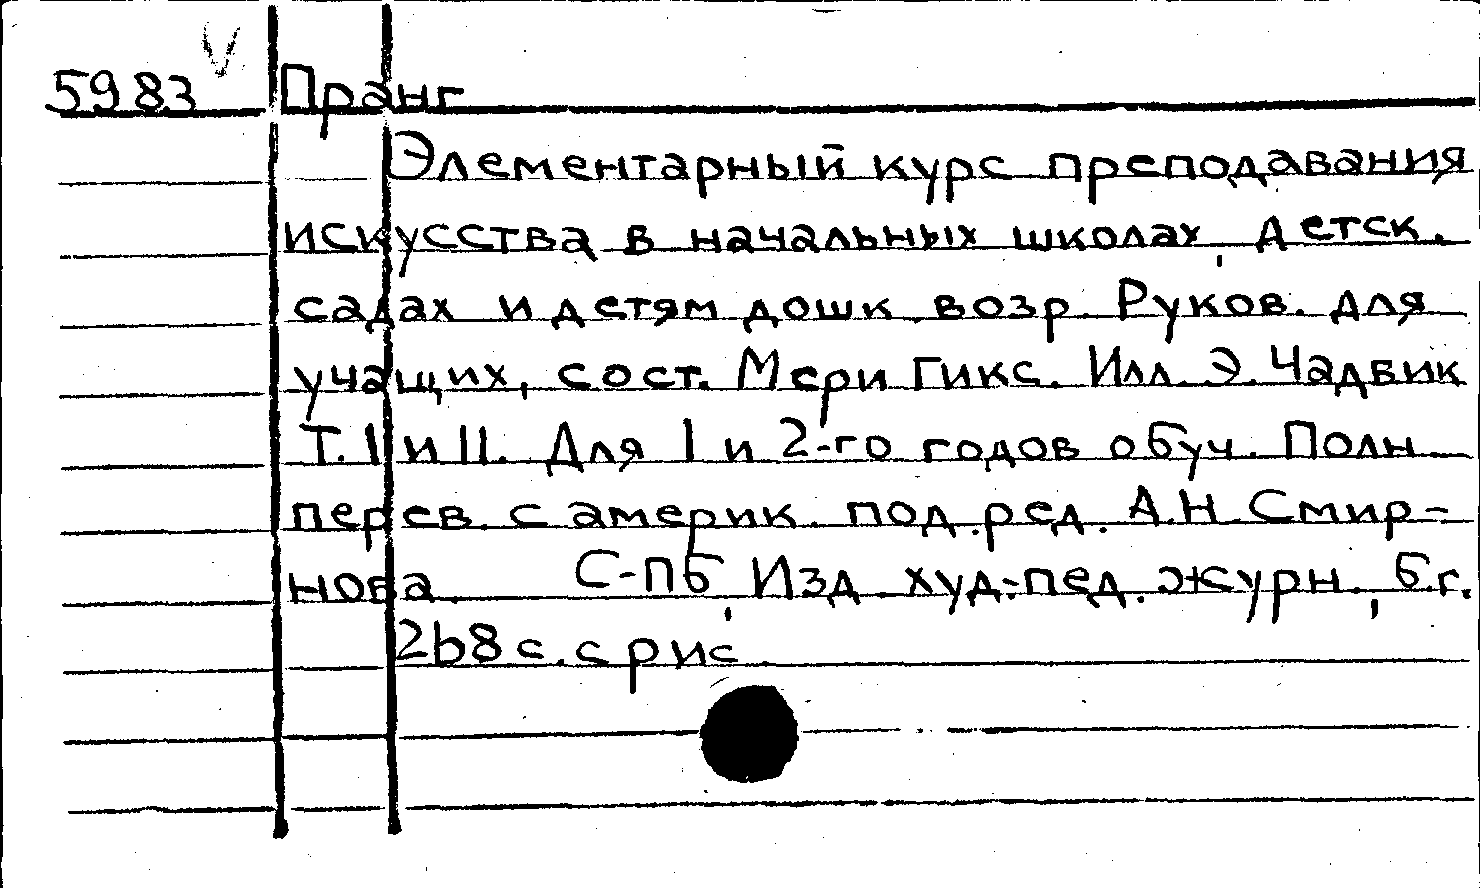 5983 V Пранг
Элементарный курс преподавания
искусства в начальных школах, детск.
садах и детям дошк. возр. Руков. для
учащих, сост. Мери Гикс. Илл. Э. Чадвик
Т. I и II. Для 1 и 2-го годов обуч. Полн.
перев. с америк. под ред. А.Н. Смир-
нова. С-Пб, Изд. худ-пед. журн., б.г.
2b8 с. с рис.